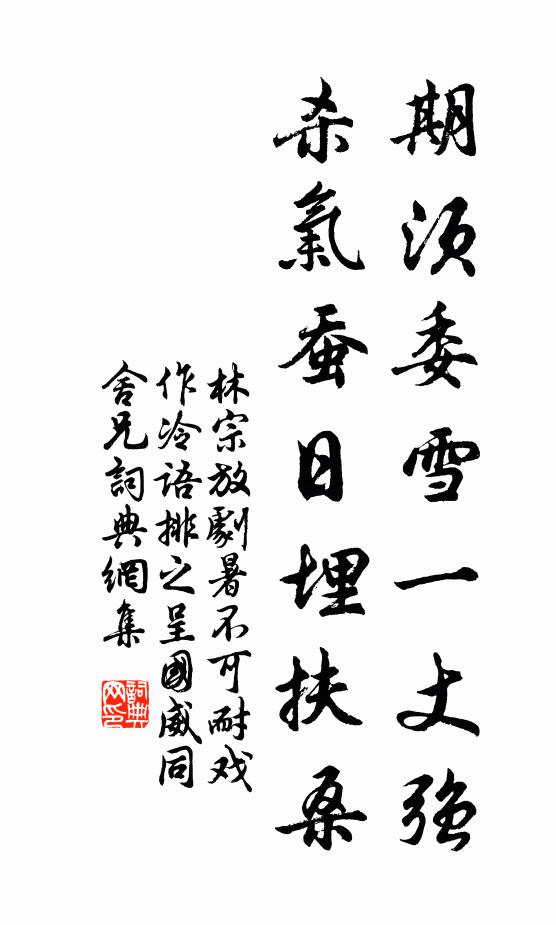 期須委雪一丈強
杀氣蚕日埋扶桑
林宗放劇暑不可耐戏
作冷语排之呈國威同
舍兄詞典網集
詞典
网印